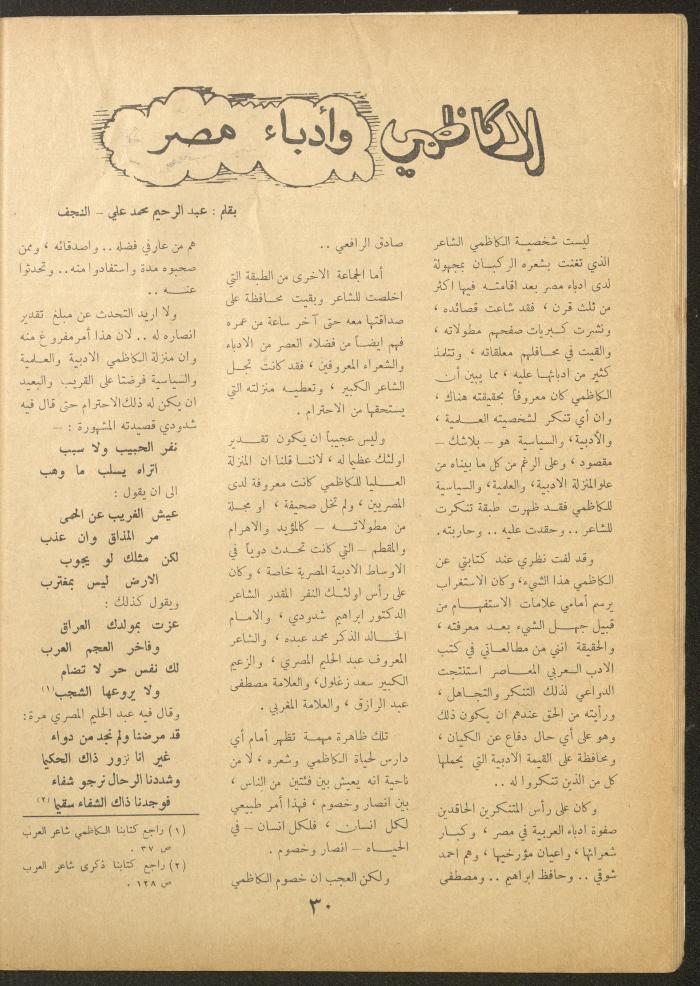 الكاظمي وأدباء مصر
بقلم : عبد الرحيم محمد علي – النجف
ليست شخصية الكاظمي الشاعر
الذي تغنت بشعره الركبان بمجهولة
لدى ادباء مصر بعد اقامته فيها اكثر
من ثلث قرن ، فقد شاعت قصائده ،
ونشرت كبريات صحفهم مطولاته ،
والقيت في محافلهم معلقاته ، وتتلمذ
كثير من ادبائها عليه ، مما يبين أن
الكاظمي كان معروفاً بحقيقته هناك ،
وان أي تنكر لشخصيته العلمية ،
والأدبية، والسياسية هو – بلاشك –
مقصود ، وعلى الرغم من كل ما بيناه من
علو المنزلة الادبية، والعلمية، والسياسية
للكاظمي فقد ظهرت طبقة تنكرت
للشاعر .. وحقدت عليه .. وحاربته.
وقد لفت نظري عند كتابتي عن
الكاظمي هذا الشيء، وكان الاستغراب
يرسم أمامي علامات الاستفهام من
قبيل جهل الشيء بعد معرفته ،
والحقيقة انني من مطالعاتي في كتب
الادب العربي المعاصر استنتجت
الدواعي لذلك التنكر والتجاهل ،
ورأيته من الحق عندهم ان يكون ذلك
وهو على أي حال دفاع عن الكيان ،
ومحافظة على القيمة الادبية التي يحملها
كل من الذين تنكروا له ..
وكان على رأس المتنكرين الحاقدين
صفوة ادباء العربية في مصر ، وكبار
شعرائها، واعيان مؤرخيها ، وهم احمد
شوقي .. وحافظ ابراهيم .. ومصطفى
صادق الرافعي ..
أما الجماعة الاخرى من الطبقة التي
اخلصت للشاعر وبقيت محافظة على
صداقتها معه حتى آخر ساعة من عمره
فهم ايضاً من فضلاء العصر من الادباء
والشعراء المعروفين ، فقد كانت تجل
الشاعر الكبير ، وتعطيه منزلته التي
يستحقها من الاحترام .
وليس عجيباً ان يكون تقدير
اولئك عظيما له ، لاننا قلنا ان المنزلة
العليا للكاظمي كانت معروفة لدى
المصريين ، ولم تخل صحيفة ، او مجلة
من مطولاته – كالمؤيد والاهرام
والمقطم – التي كانت تحدث دوياً في
الاوساط الادبية المصرية خاصة ، وكان
على رأس اولئك النفر المقدر الشاعر
الدكتور ابراهيم شدودي ، والامام
الخالد الذكر محمد عبده ، والشاعر
المعروف عبد الحليم المصري ، والزعيم
الكبير سعد زغلول، والعلامة مصطفى
عبد الرازق ، والعلامة المغربي .
تلك ظاهرة مهمة تظهر أمام أي
دارس لحياة الكاظمي وشعره ، لا من
ناحية انه يعيش بين فئتين من الناس ،
بين انصار وخصوم ، فهذا أمر طبيعي
لكل انسان ، فلكل انسان – في
الحياه – انصار وخصوم .
ولكن العجب ان خصوم الكاظمي
هم من عارفي فضله .. واصدقائه ، وممن
صحبوه مدة واستفادوا منه .. وتحدثوا
عنه ..
ولا اريد التحدث عن مبلغ تقدير
انصاره له .. لان هذا أمر مفروغ منه
وان منزلة الكاظمي الادبية والعلمية
والسياسية فرضتا على القريب والبعيد
ان يكن له ذلك الاحترام حتى قال فيه
شدودي قصيدته المشهورة : –
نفر الحبيب ولا سبب
اتراه يسلب ما وهب
الى ان يقول :
عيش الغريب عن الحمى
مر المذاق وان عذب
لكن مثلك لو يجوب
الارض ليس بمغترب
ويقول كذلك :
عزت بمولدك العراق
وفاخر العجم العرب
لك نفس حر لا تضام
ولا يروعها الشجب (١)
وقال فيه عبد الحليم المصري مرة :
قد مرضنا ولم نجد من دواء
غير انا نزور ذاك الحكيما
وشددنا الرحال نرجو شفاء
فوجدنا ذاك الشفاء سقيما (٢)
(١) راجع كتابنا الكاظمي شاعر العرب
ص ٣٧ .
(٢) راجع كتابنا ذكرى شاعر العرب
ص ١٢٨ .
٣٠